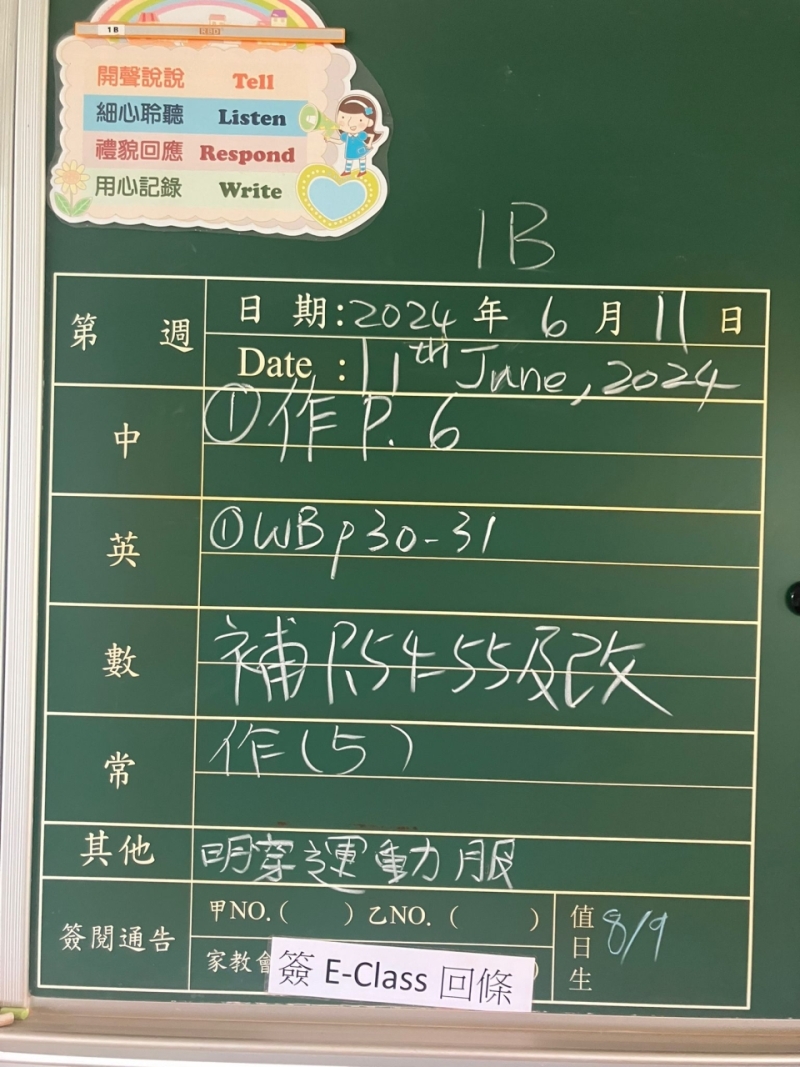 1B
開聲說說 Tell
細心聆聽 Listen
禮貌回應 Respond
用心記錄 Write
1B
第 週
日 期:2024 年 6 月 11 日
Date : 11th June, 2024
中 ①作 P. 6
英 ①WB p30-31
數 補 P.54-55及改
常 作(5)
其他 明穿運動服
簽閱通告 甲NO.( ) 乙NO. ( )
家教會
簽 E-Class 回條
值日生 8/9